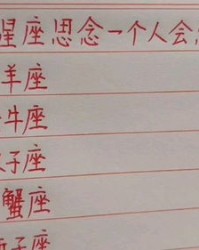 星座思念一个人会
羊座
牛座
子座
蟹座
子座